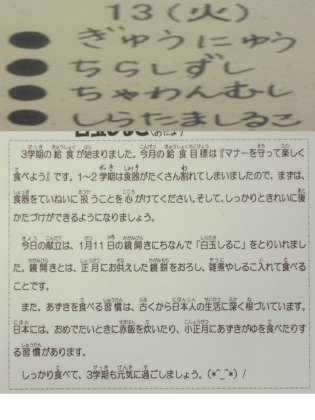 13(火)
● ぎゅうにゅう
● ちらしずし
● ちゃわんむし
● しらたましるこ
3学期の給食が始まりました。今月の給食目標は『マナーを守って楽しく
食べよう』です。1～2学期は食器がたくさん割れてしまいましたので、まずは、
食器をていねいに扱うことを心がけてください。そして、しっかりときれいに後
かたづけができるようになりましょう。
今日の献立は、1月11日の鏡開きにちなんで「白玉しるこ」をとりいれまし
た。鏡開きとは、正月にお供えした鏡餅をおろし、雑煮やしるこ入れて食べる
ことです。
また、あずきを食べる習慣は、古くから日本人の生活に深く根づいています。
日本には、おめでたいときに赤飯を炊いたり、小正月にあずきがゆを食べたりす
る習慣があります。
しっかり食べて、3学期も元気に過ごしましょう。(*^_^*)/